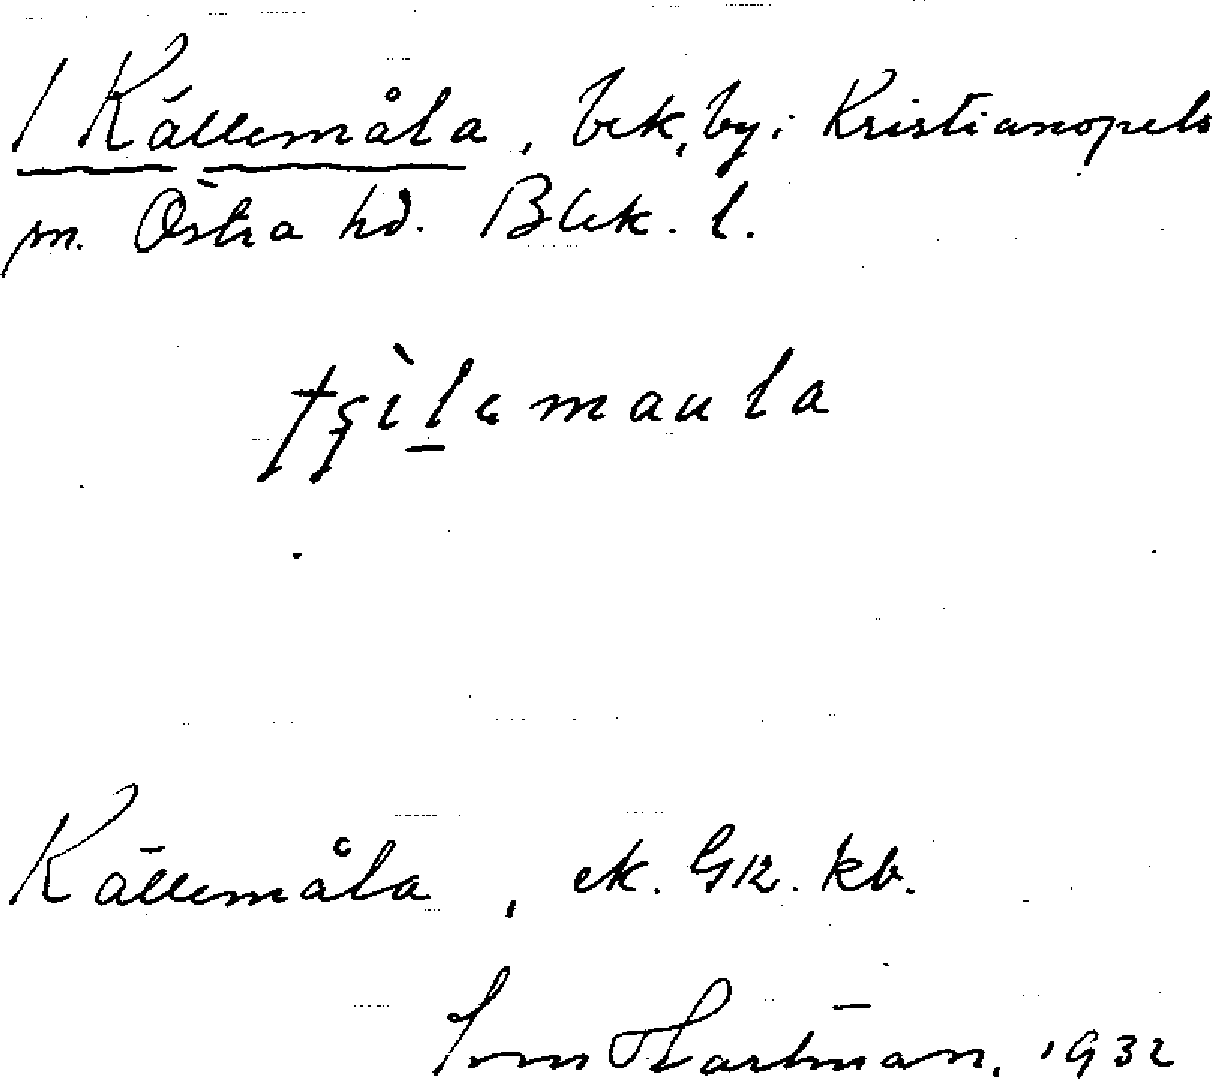 / Källemåla, bek, by i Kristianopels
sn. Östra hd. Blek. l.
Källemåla, ek. GK. kb.
Hartman, 1932